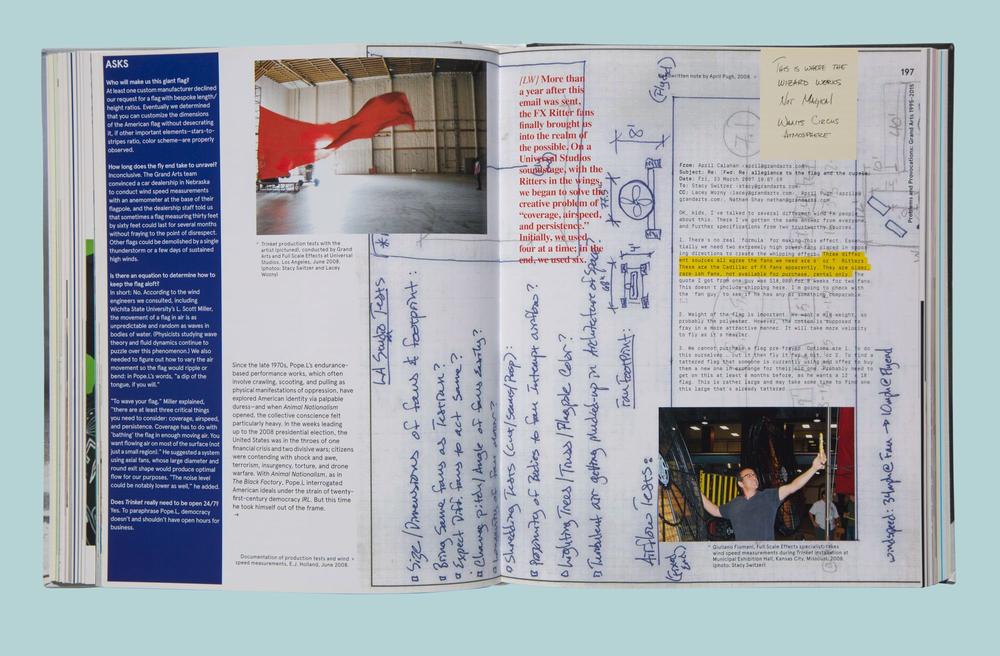 ASKS
Who will make us this giant flag?
At least one custom manufacturer declined
our request for a flag with bespoke length/
height ratios. Eventually we determined
that you can customize the dimensions
of the American flag without desecrating
it, if other important elements—stars-to-
stripes ratio, color scheme—are properly
observed.
How long does the fly end take to unravel?
Inconclusive. The Grand Arts team
convinced a car dealership in Nebraska
to conduct wind speed measurements
with an anemometer at the base of their
flagpole, and the dealership staff told us
that sometimes a flag measuring thirty feet
by sixty feet could last for several months
without fraying to the point of disrespect.
Other flags could be demolished by a single
thunderstorm or a few days of sustained
high winds.
Is there an equation to determine how to
keep the flag aloft?
In short: No. According to the wind
engineers we consulted, including
Wichita State University's L. Scott Miller,
the movement of a flag in air is as
unpredictable and random as waves in
bodies of water. (Physicists studying wave
theory and fluid dynamics continue to
puzzle over this phenomenon.) We also
needed to figure out how to vary the air
movement so the flag would ripple or
bend: in Pope.L's words, "a dip of the
tongue, if you will."
"To wave your flag," Miller explained,
"there are at least three critical things
you need to consider: coverage, airspeed,
and persistence. Coverage has to do with
'bathing' the flag in enough moving air. You
want flowing air on most of the surface (not
just a small region)." He suggested a system
using axial fans, whose large diameter and
round exit shape would produce optimal
flow for our purposes. "The noise level
could be notably lower as well," he added.
Does Trinket really need to be open 24/7?
Yes. To paraphrase Pope.L, democracy
doesn't and shouldn't have open hours for
business.
Trinket production tests with the
artist (pictured), conducted by Grand
Arts and Full Scale Effects at Universal
Studios, Los Angeles, June 2008.
(photos: Stacy Switzer and Lacey
Wozny)
Since the late 1970s, Pope.L's endurance-
based performance works, which often
involve crawling, scooting, and pulling as
physical manifestations of oppression, have
explored American identity via palpable
duress—and when Animal Nationalism
opened, the collective conscience felt
particularly heavy. In the weeks leading
up to the 2008 presidential election, the
United States was in the throes of one
financial crisis and two divisive wars; citizens
were contending with shock and awe,
terrorism, insurgency, torture, and drone
warfare. With Animal Nationalism, as in
The Black Factory, Pope.L interrogated
American ideals under the strain of twenty-
first-century democracy IRL. But this time
he took himself out of the frame.
→
Documentation of production tests and wind
speed measurements, E.J. Holland, June 2008.
LA Studio Tests
Size / Dimensions of fans & footprint:
Bring Same fans as Test Ran?
Expect Diff. fans to act same?
Change pitch/Angle of fans easily?
Shredding Tests (cut/sand/Prep):
Proximity of Bodies to fans Interrupt airflow?
Lighting Trees / Truss / Flagpole Color?
Turbulent air getting mucked-up in Architecture of space?
[LW] More than
a year after this
email was sent,
the FX Ritter fans
finally brought us
into the realm of
the possible. On a
Universal Studios
soundstage, with the
Ritters in the wings,
we began to solve the
creative problem of
"coverage, airspeed,
and persistence."
Initially, we used
four at a time; in the
end, we used six.
Fan footprint:
8'
4'
Airflow Tests:
(Flyend)
written note by April Pugh, 2008.
THIS IS WHERE THE
WIZARD WORKS
NOT MAGICAL
WANTS CIRCUS
ATMOSPHERE
197
Problems and Provocations: Grand Arts 1995–2015
From: April Calahan
Subject: Re: [Fwd: Re: allegiance to the flag and the
Date: Fri, 23 March 2007
To: Stacy Switzer
CC: Lacey Wozny
OK, kids, I've talked to several different wind FX people
about this. There I've gotten the same answer from everyone
and further specifications from two trustworthy sources.
1. There's no real formula for making this effect.
tally we need two extremely high power fans placed in
ing directions to create the whipping effect. Three
ent sources all agree the fans we need are Ritters.
These are the Cadillac of FX fans apparently. They are older,
rare-ish fans, not available for purchase, rental only. The
quote I got from one guy was $18,000 for 8 weeks for two fans.
This doesn't include shipping. I'm going to check with
the "fan guy" to see if he has any or something comparable
2. Weight of the flag is important. We want a mid weight, so
probably the polyester. However, the cotton is supposed to
fray in a more attractive manner. It will take more velocity
to fly as it's heavier.
3. We cannot purchase a flag pre-frayed. Options are 1. To do
this ourselves To find a
tattered flag that someone is currently using and offer to buy
them a new one in exchange for their old one. Probably need to
get on this at least 6 months before, as he wants a 12 x 18
flag. This is rather large and may take some time to find one
this large that's already tattered.
Giuliano Fiumani, Full Scale Effects specialist, takes
wind speed measurements during Trinket installation at
Municipal Exhibition Hall, Kansas City, Missouri, 2008.
(photo: Stacy Switzer)
windspeed: 34mph@Fan → 10mph@Flyend